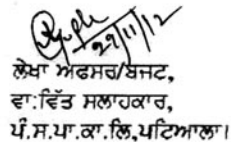 29/11/12
ਲੇਖਾ ਅਫਸਰ/ਬਜਟ,
ਵਾ:ਵਿੱਤ ਸਲਾਹਕਾਰ,
ਪੰ.ਸ.ਪਾ.ਕਾ.ਲਿ,ਪਟਿਆਲਾ।